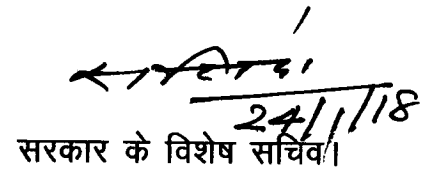 24/1/18
सरकार के विशेष सचिव।